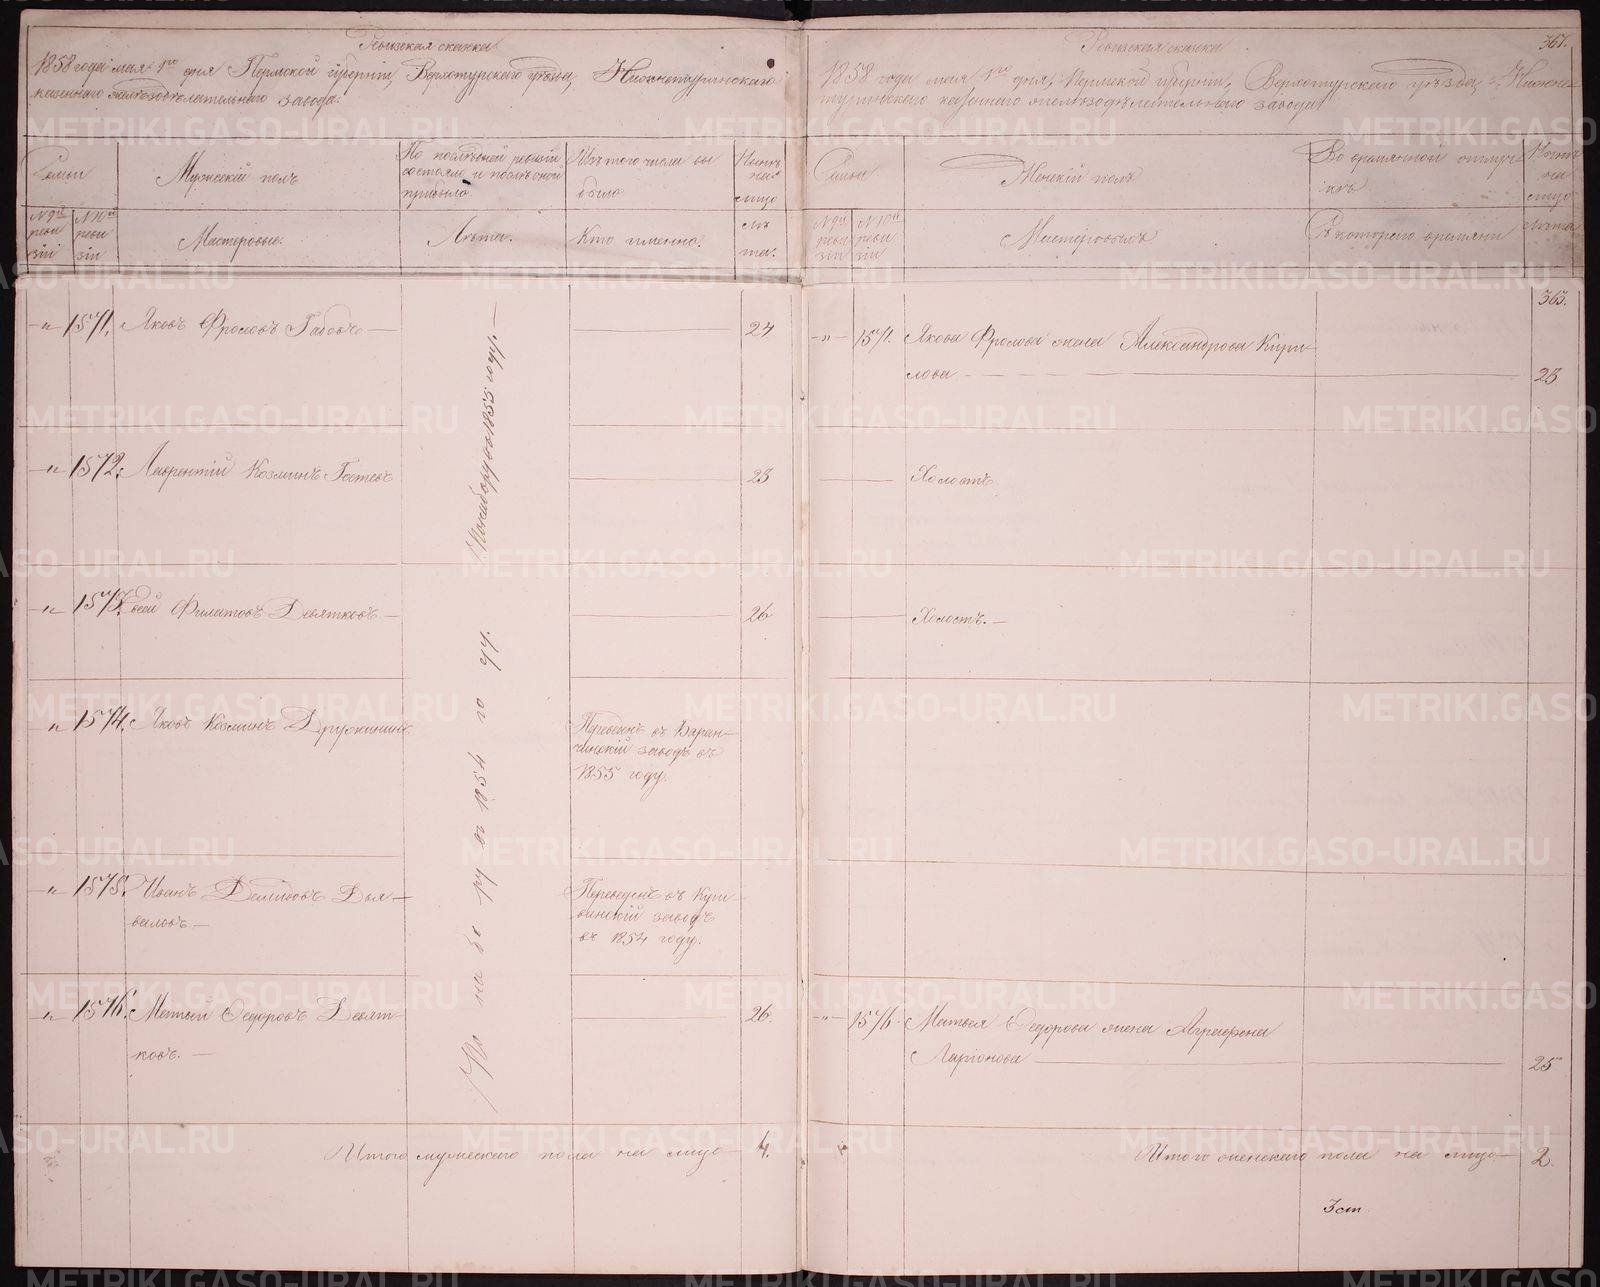 Ревизская сказка
1858 года мая 1го дня Пермской губернiи, Верхотурского уезда, Нижнетуринскаго
казеннаго железоделательнаго завода:
Семьи
Мужескiй полъ
По последней ревизiи состояло и после оной прибыло
Изъ того числа выбыло
Ныне на лицо
№ 9й ревизiи
№ 10й ревизiи
Мастеровые.
Лета.
Кто именно.
Лета.
„ 1571. Яковъ Фроловъ Габовъ — 24
„ 1572. Лаврентiй Козминъ Гостевъ 23
„ 1573. Филатовъ Девятковъ — 26
„ 1574. Яковъ Козминъ Дружининъ
Переведенъ въ Баран-
чинскiй заводъ въ
1855 году.
„ 1575. Иванъ Демидовъ Дья-
Переведенъ въ Куш-
винскiй заводъ
въ 1854 году.
„ 1576. Матвей Федоровъ Девят-
ковъ. — 26
По набору въ 1854 году.
По набору въ 1855 году. —
Итого мужескаго пола на лицо — 4.
367.
Ревизская сказка
1858 года мая 1го дня, Пермской губернiи, Верхотурского уезда, Нижне-
туринскаго казеннаго железоделательнаго завода
Семьи
Женскiй полъ
Во временной отлучке
Ныне на лицо
№ 9й ревизiи
№ 10й ревизiи
Мастеровыхъ
Съ котораго времяни
Лета
363.
„ 1571. Якова Фролова жена Александрова Кири-
лова — 23
Холостъ
Холостъ. —
„ 1576. Матвея Федорова жена Аграфена
Ларiонова — 25
Итого женскаго пола на лицо — 2
3 ст
METRIKI.GASO-URAL.RU